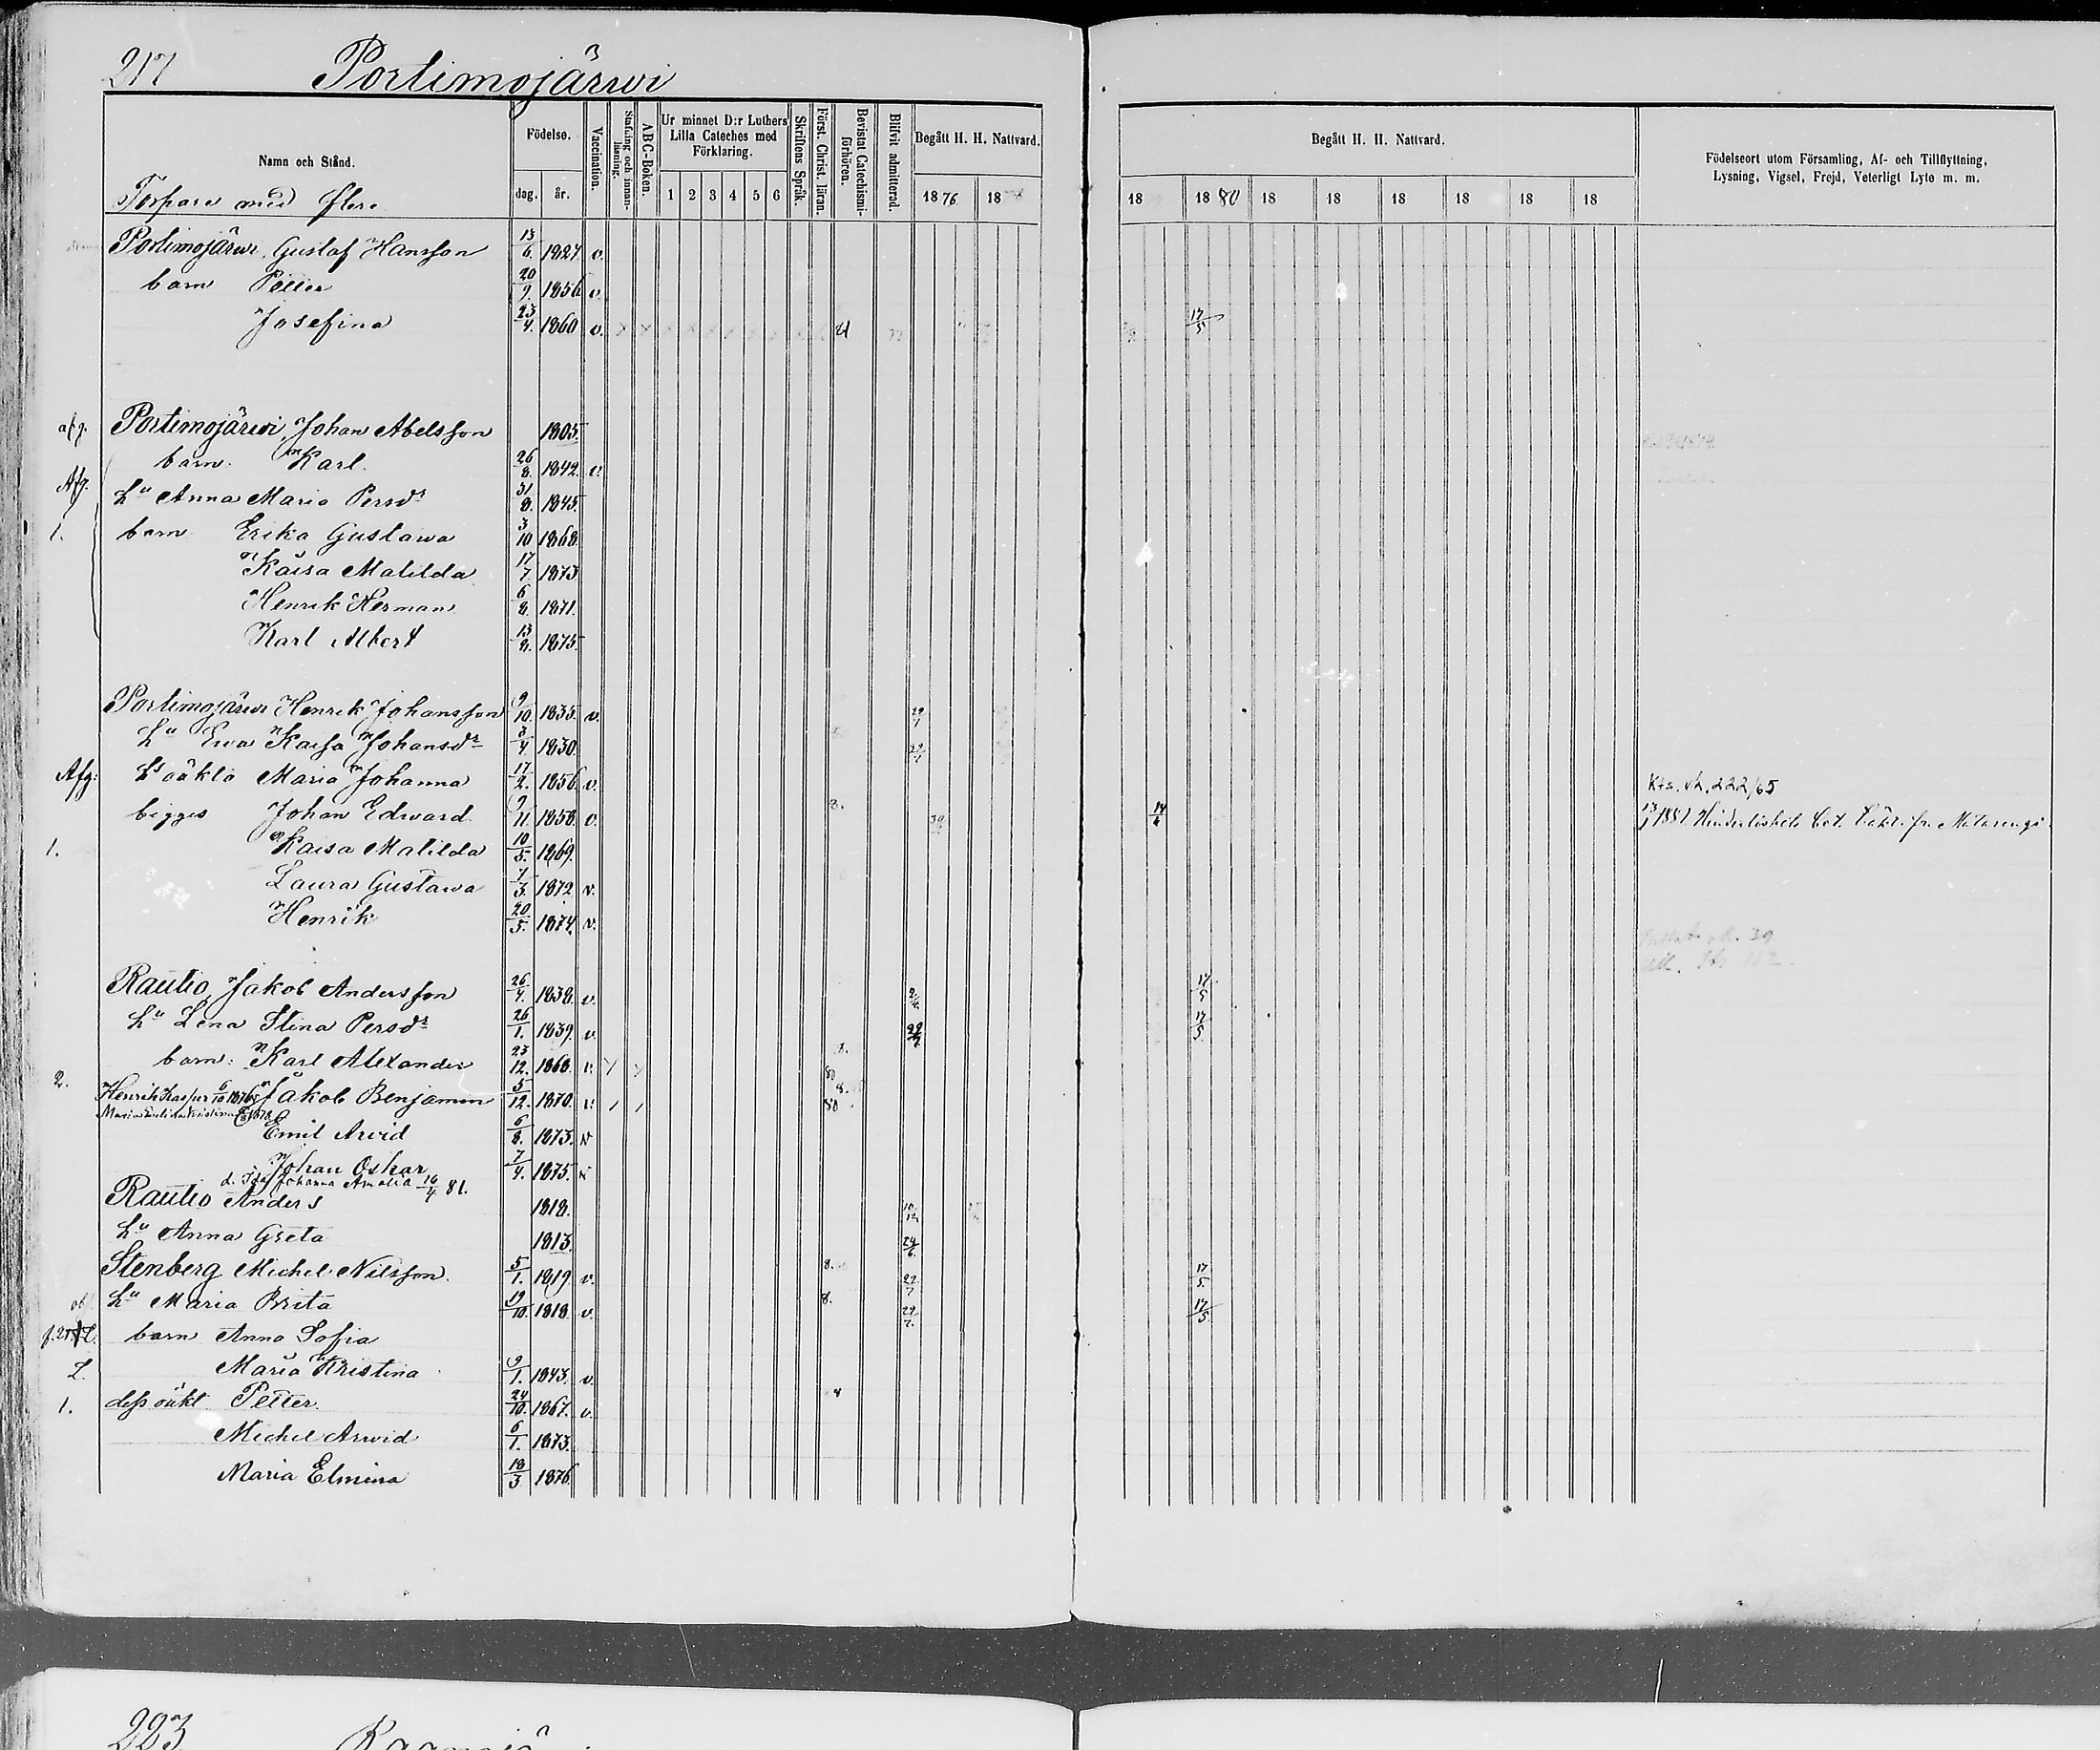 217 Portimojärwi
Namn och Stånd.
Födelse.
dag. år.
Vaccination.
Stafning och innanläsning.
ABC-Boken.
Ur minnet D:r Luthers Lilla Cateches med Förklaring.
1 2 3 4 5 6
Skriftens Språk.
Först. Christ. läran.
Bevistat Catechismiförhören.
Blifvit admitterad.
Begått H. H. Nattvard.
1876 18
Begått H. H. Nattvard.
18 1880 18 18 18 18 18 18
Födelseort utom Församling, Af- och Tillflyttning,
Lysning, Vigsel, Frejd, Veterligt Lyte m. m.
Torpare med flere
Portimojärwi Gustaf Hansson 13/6. 1827. v.
barn Petter 20/9. 1856 v.
Josefina 23/4. 1860 v. 17/5
afg. Portimojärwi Johan Abelsson 1805.
barn. Karl. 26/8. 1842. v.
Afg. hu Anna Maria Persdr 31/8. 1845.
1. barn Erika Gustawa 3/10 1868.
Kaisa Matilda 17/7 1873
Henrik Herman 6/8. 1871.
Karl Albert 13/8. 1875.
Portimojärwi Henrik Johansson 9/10. 1835. v. 29/7
hu Ewa Kaisa Johansdr 3/4. 1830. 29/7
Afg: hs oäkta Maria Johanna 17/2. 1856. v. Kts. sh. 222/65
begges Johan Edward 9/11. 1858. v. 8. 14/6 13/1 1881 Hinderlöshets bet. Mätarengi
1. Kaisa Matilda 10/5. 1869.
Laura Gustawa 7/3. 1872 v.
Henrik 20/5. 1874. v.
Rautio Jakob Andersson 26/4. 1838. v. 17/5
hu Lena Stina Persdr 26/1. 1839. v. 29/7 17/5
barn: Karl Alexander 23/12. 1868. v.
2. Henrik Kasper 6/10 1876 Jakob Benjamin 5/12. 1870. v. 8.
Emil Arvid 6/8. 1873. v
Johan Oskar 7/4. 1875. v
d. Ida Johanna Amalia 10/4 81.
Rautio Anders 1818. 10/12
hu Anna Greta 1813. 24/6.
Stenberg Michel Nilsson. 5/1. 1819 v. 8. 29/7 17/5.
hu Maria Brita 19/10. 1818 v. 8. 29/7. 17/5
barn Anna Sofia
2. Maria Kristina 9/1. 1843. v.
1. dess oäkt Petter. 24/10. 1867. v. 4
Michel Arwid 6/1. 1873.
Maria Elmina 18/3 1876.
223